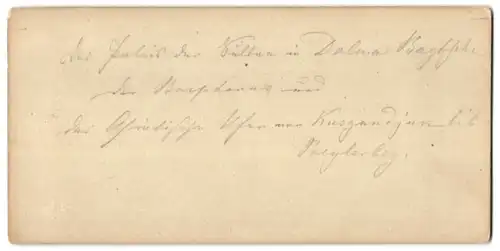 Der Palais des Sultan in Dolma Bagtsche.
Der Bosphorus und
das Asiatische Ufer von Kuszgundjux bis
Beylerbey.